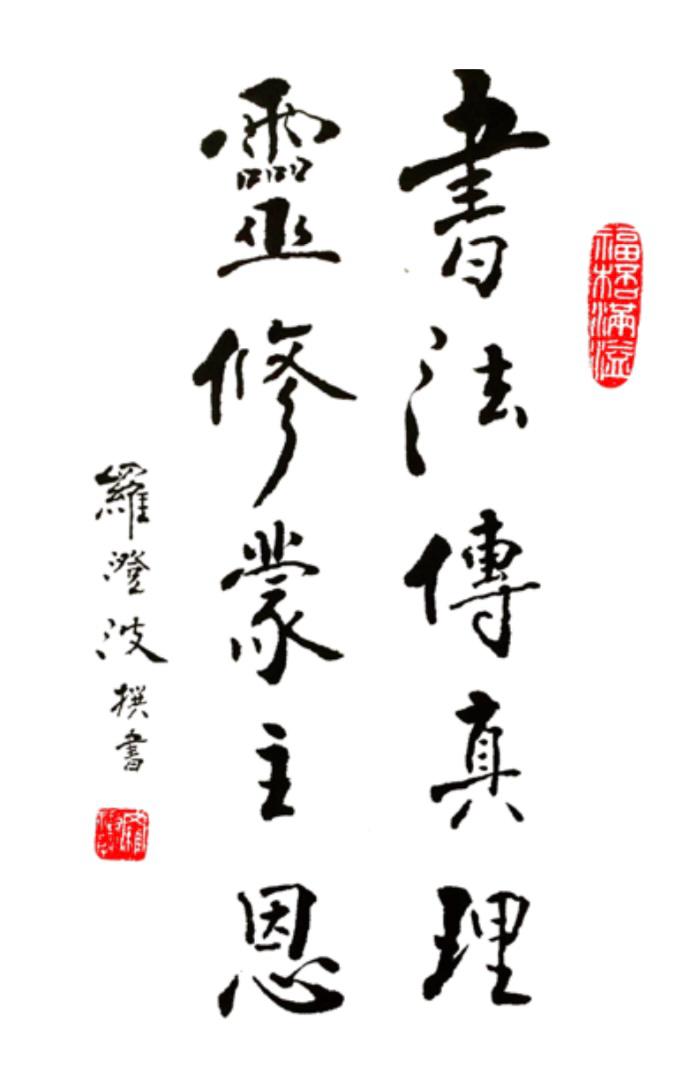 福杯滿溢
書法傳真理
靈修蒙主恩
羅澄波撰書